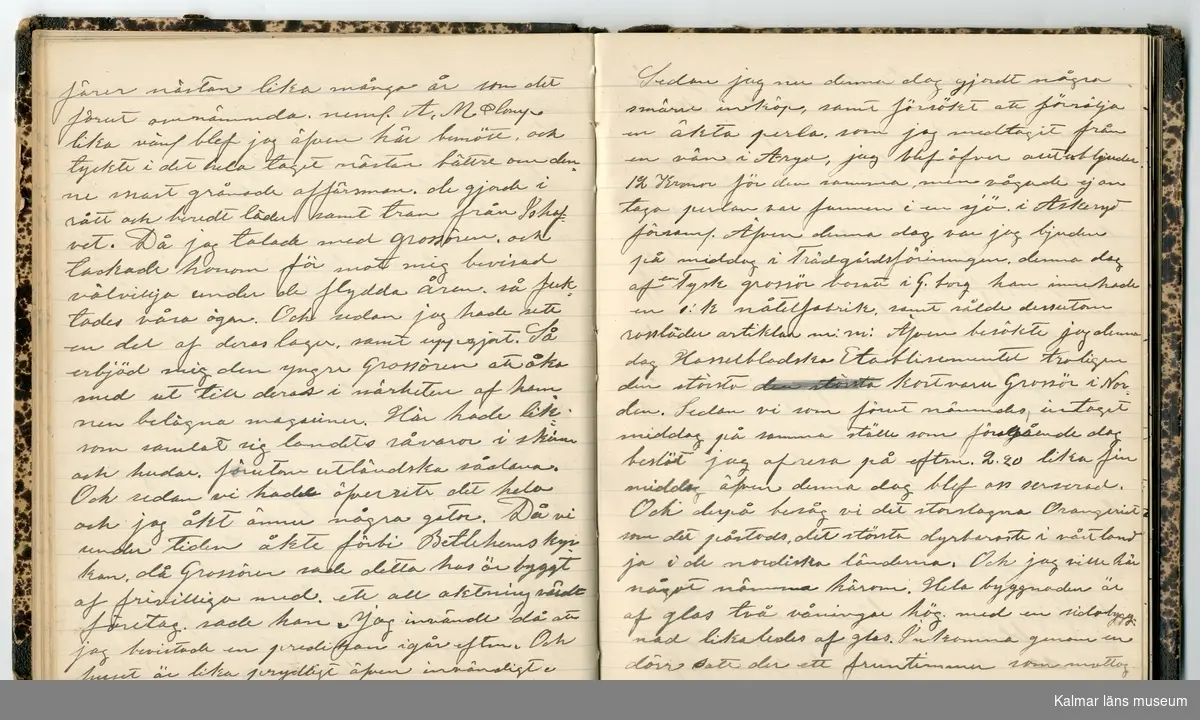 färer nästan lika många år som det
förut omnämnda. neml. A. M.
lika vänl blef jag äfven här bemött, och
tyckte i det hela taget nästan bättre om den-
ne snart grånade affärsman. de gjorde i
rått och beredt läder samt tran från Ishaf-
vet. Då jag talade med Grossören. och
tackade honom för mot mig bevisad
välvilja under de flydda åren. så fuk-
tades våra ögon. Och sedan jag hade sett
en del af deras lager, samt uppgjort. Så
erbjöd mig den yngre Grossören att åka
med ut till deras i närheten af ham
nen belägna magasiner. Här hade lik-
som samlat sig landets råvaror i skinn
och hudar. förutom utländska sådana.
Och sedan vi hade öfversett det hela
och jag åkt ännu några gator. Då vi
under tiden åkte förbi Betlehemskyr-
kan, då Grossören sade detta hus är byggt
af frivilliga med. ett all aktning värdt
företag. sade han. Jag invände då att
jag bevistade en predikan igår eftm. Och
huset är lika prydligt äfven invändigt.
Sedan jag nu denna dag gjordt några
smärre inköp, samt försökt att försälja
en äkta perla, som jag medtaget från
en vän i Aryd, jag blef öfver allt bljuden
12 Kronor för den samma, men vågade ej an
taga perlan var funnen i en sjö. i Askeryd
församl. Äfven denna dag var jag bjuden
på middag i Trädgårdsföreningen, denna dag
af en Tysk grossör bosatt i G.borg han innehade
en s: k nåtelfabrik, samt sålde dessutom
rosläder artiklar m: m: Äfven besökte jag denna
dag Hasselbladska Etablisementet troligen
den största den största kortvaru Grossör i Nor-
den. Sedan vi som förut nämndes, intaget
middag på samma ställe som föregående dag
beslöt jag afresa på eftm. 2.20 lika fin
middag äfven denna dag blef oss serverad.
Och derpå besåg vi det storslagna Orangeriet
som det påstods, det största dyrbaraste i vårt land
ja i de nordiska länderna. Och jag ville här
något nämna härom. Hela byggnaden är
af glas två våningar hög med en sidobygg-
nad likaledes af glas. Inkomna genom en
dörr satt der ett fruntimmer som mottog
Kalmar läns museum